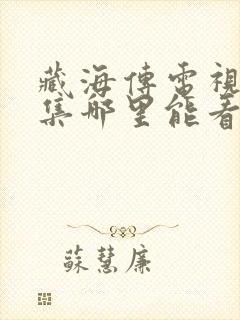 藏海傳電視
集哪里能看
蘇慧廉